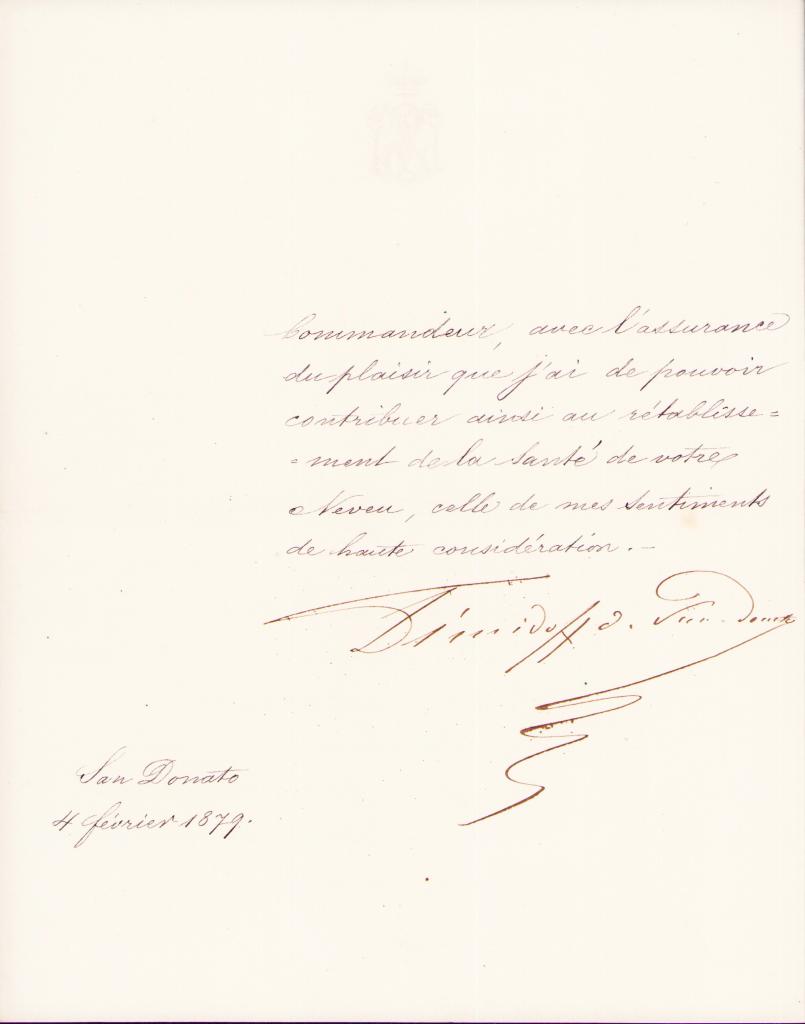 Commandeur, avec l'assurance
du plaisir que j'ai de pouvoir
contribuer ainsi au rétablisse=
=ment de la santé de votre
Neveu, celle de mes sentiments
de haute considération. —
Démidoff d. San Donato
San Donato
4 février 1879.